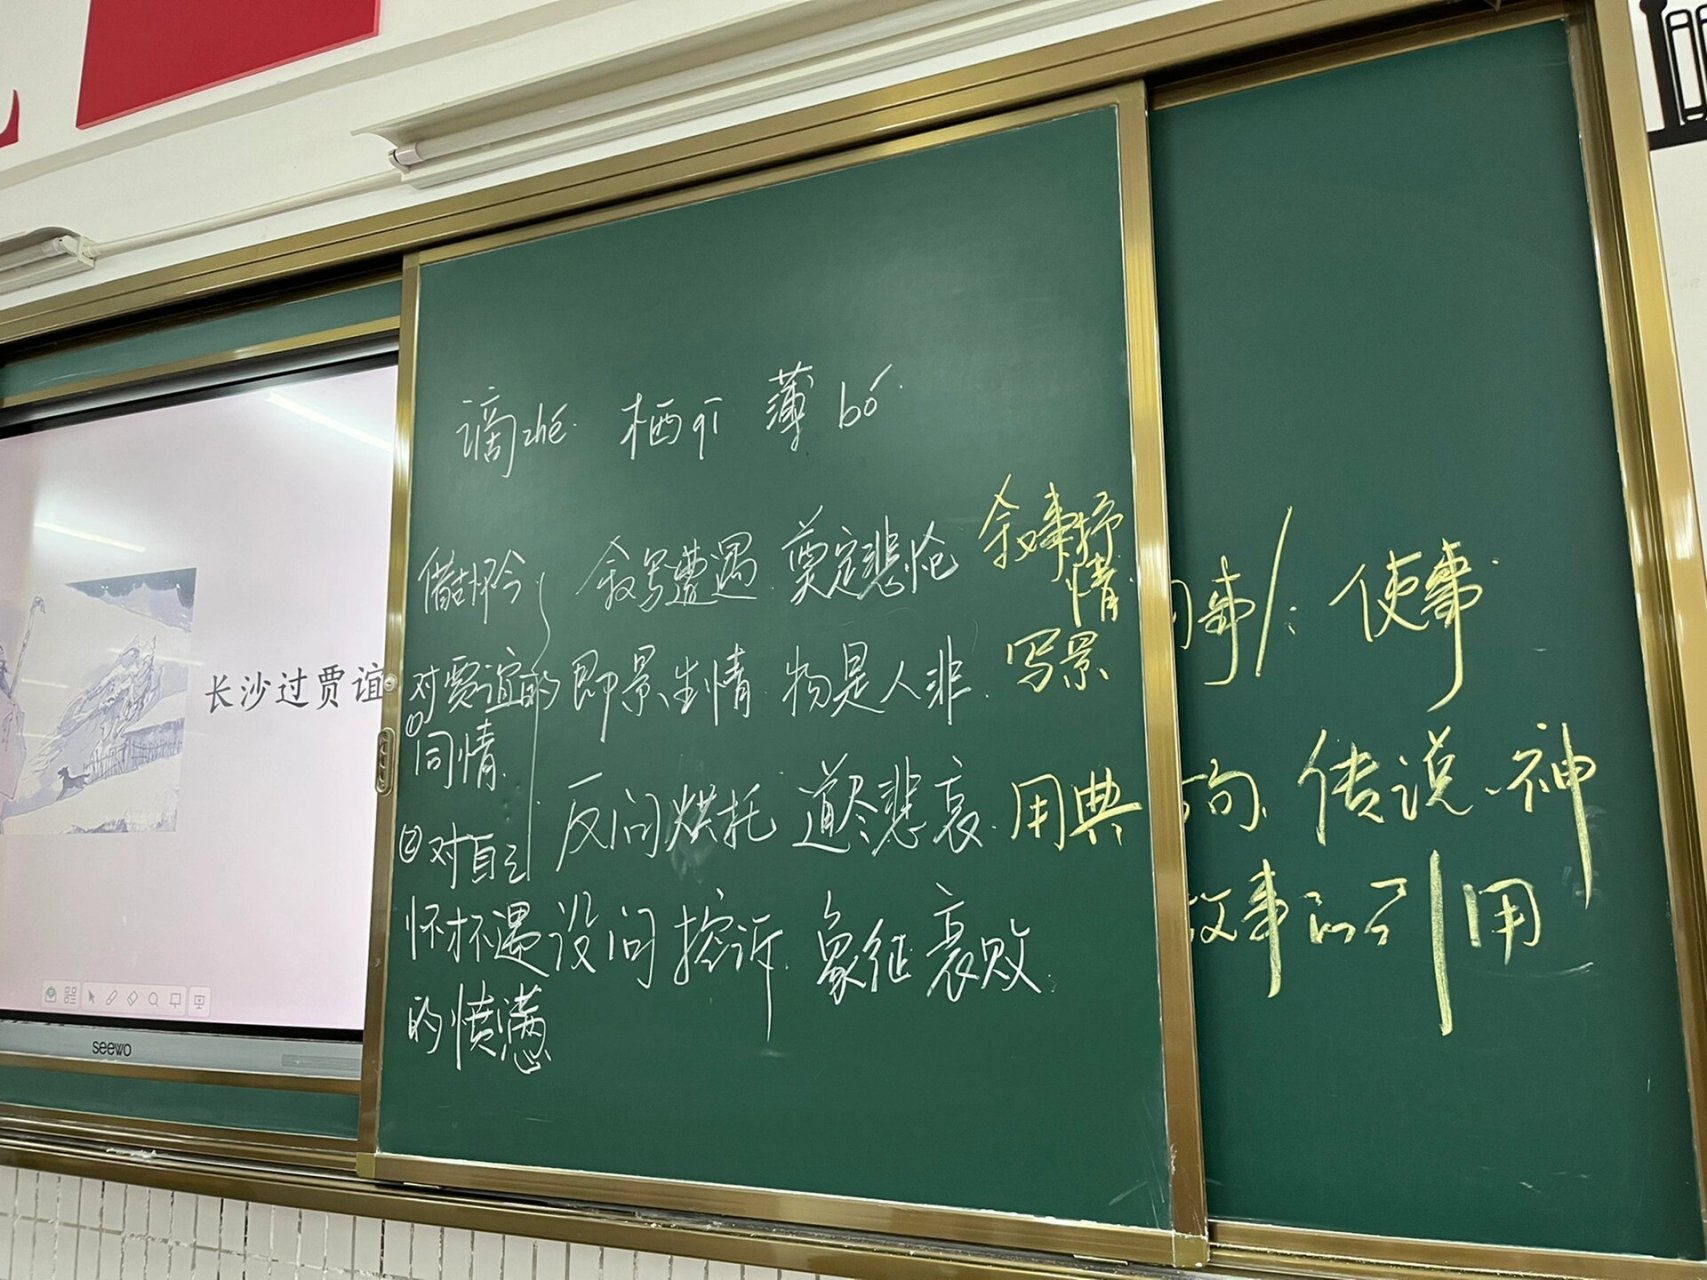 长沙过贾谊
seewo
谪zhé 栖qī 薄bó
借古怀今 叙写遭遇 奠定悲怆 叙事抒情
对贾谊的 即景生情 物是人非 写景
①同情
反问烘托 道尽悲哀 用典
②对自己
怀才不遇 设问控诉 象征衰败
的愤懑
事/：使事
句、传说、神
故事的引用